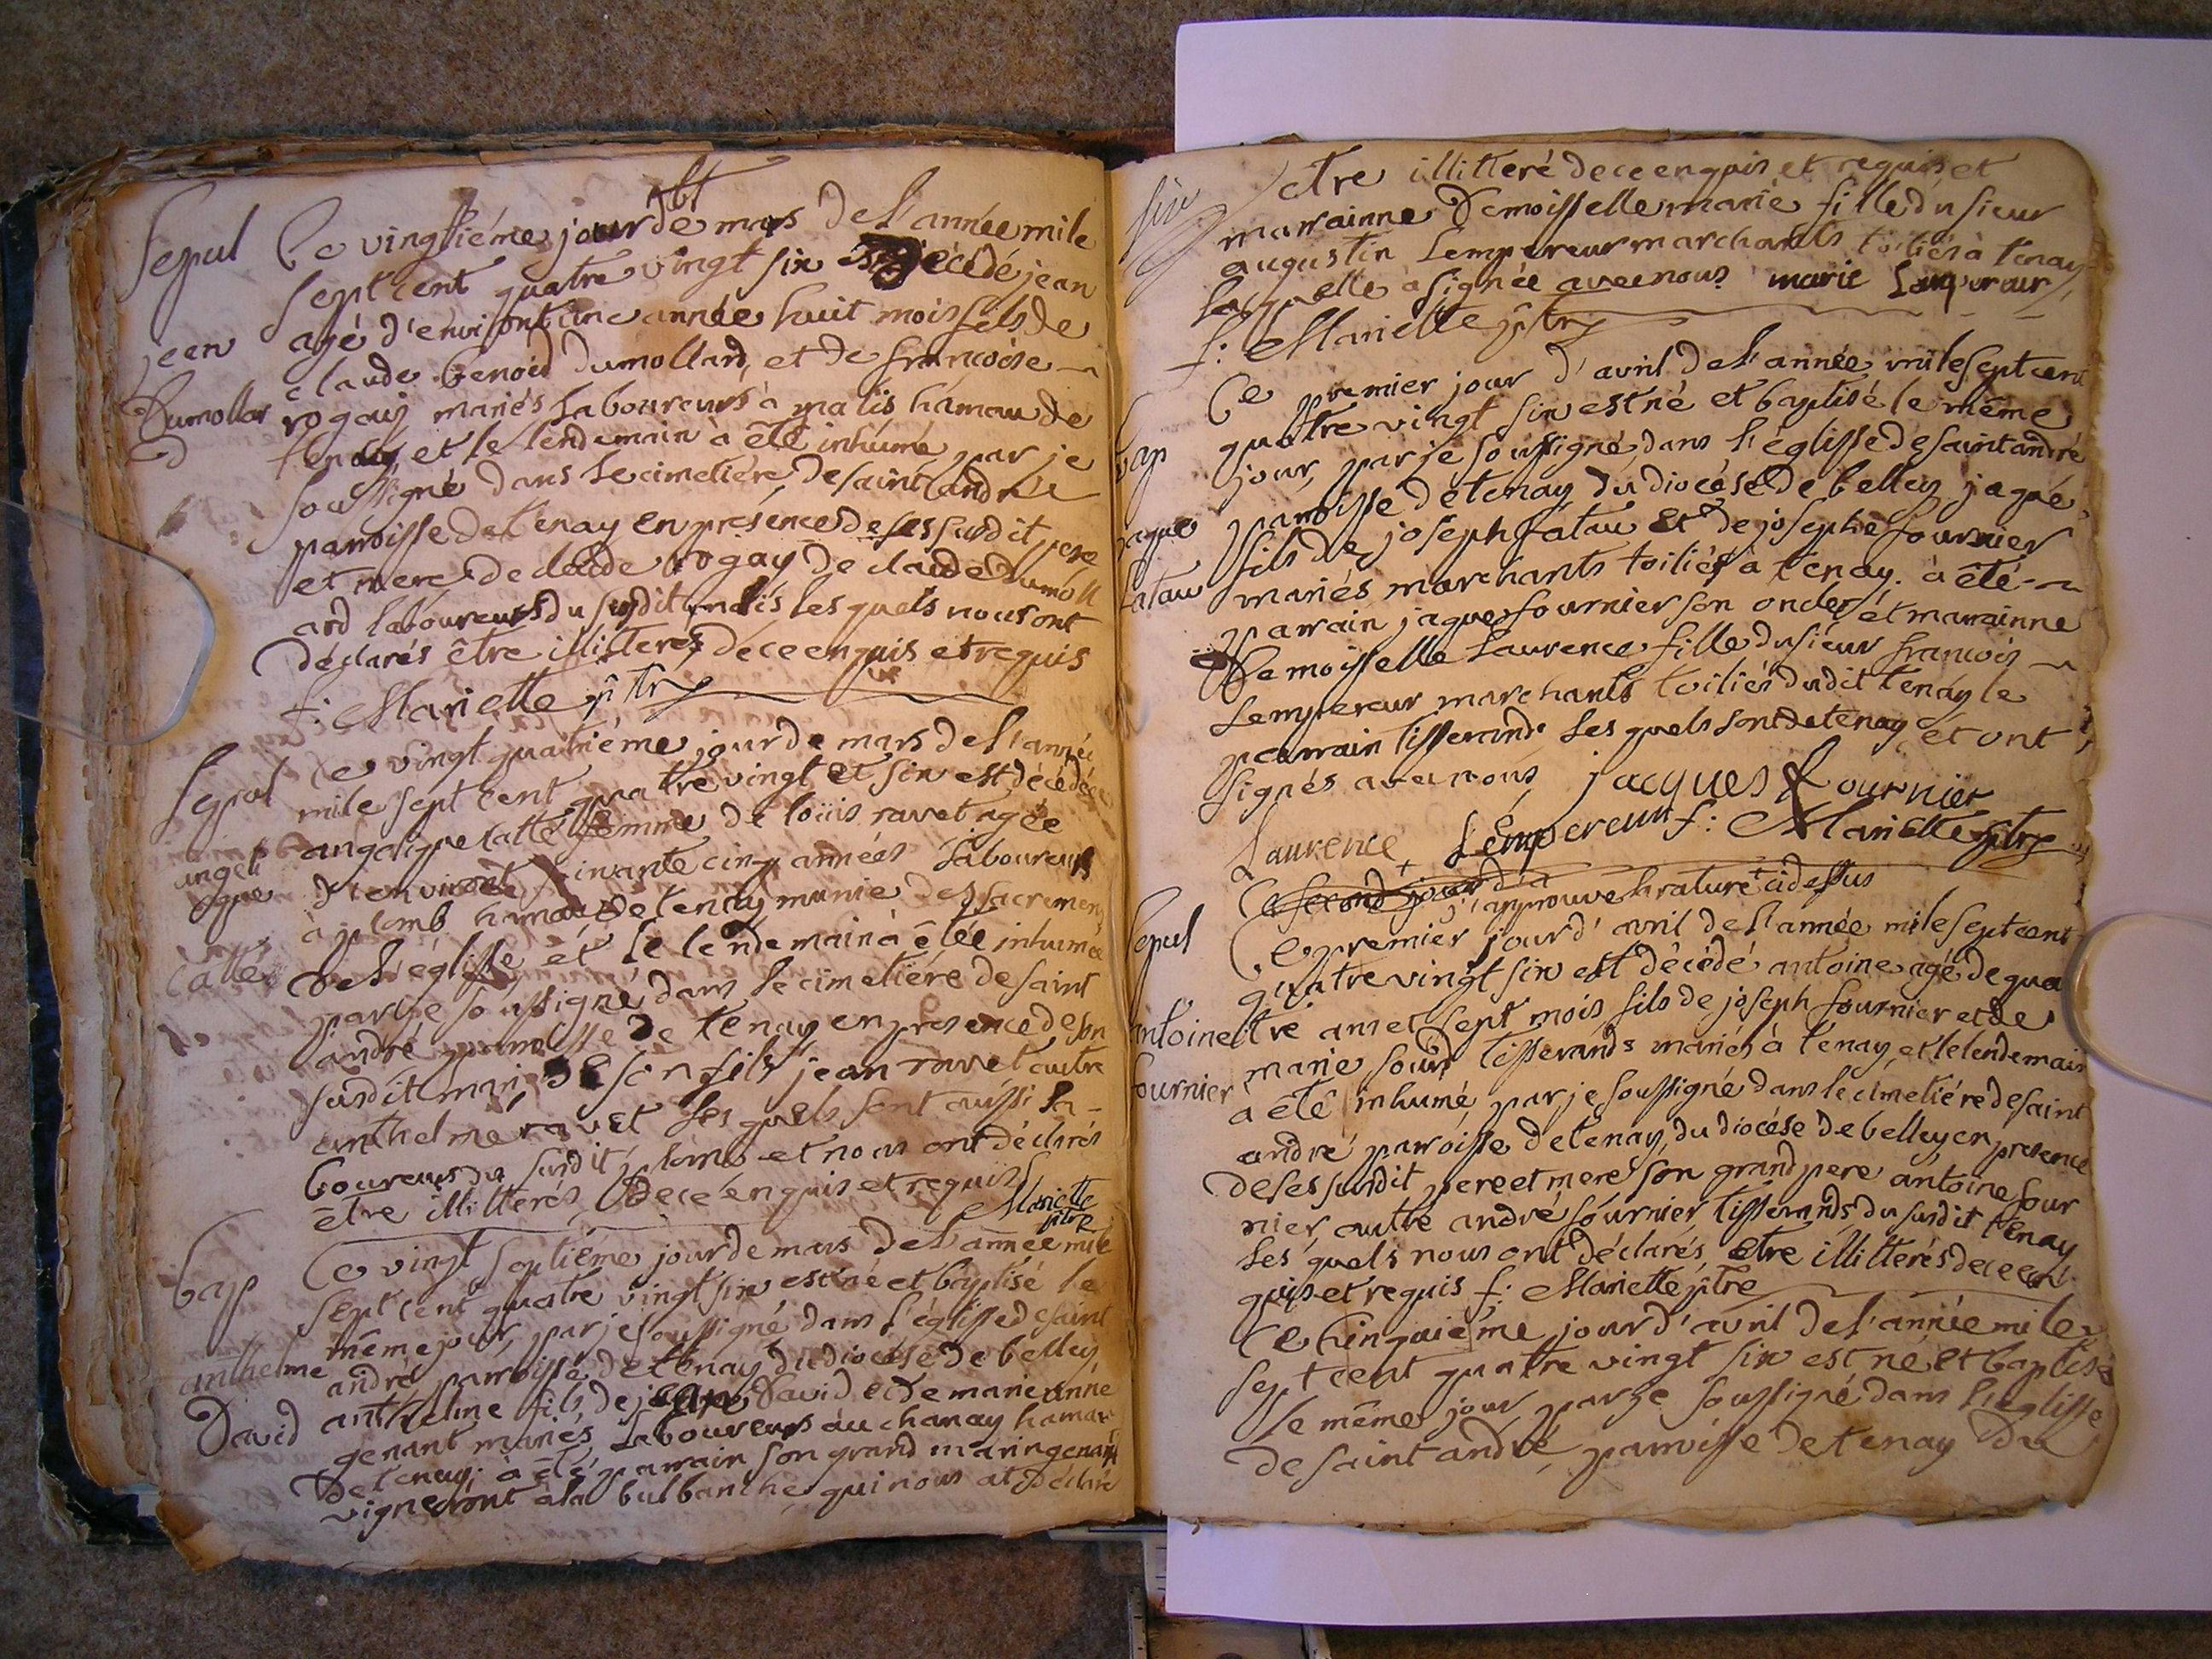 Sepul
jean
Dumollar
d
Ce vingtiéme jour de mars de l'année mile
sept cent quatre vingt six est décédé jean
agé d'environt une année huit mois fils de
claude benoid dumollard, et de francoise
rogay mariés laboureurs à malis hamau de
tenay, et le lendemain à été inhumé par je
soussigné dans le cimetiére de saint andre
paroisse de tenay en présence de ses susdit pere
et mere de claude rogay de claude dumoll
ard laboureurs du susdit malis les quels nous ont
déclarés être illiterés de ce enquis et requis
f: Mariette ptre
Sepul
angeli
que
latté
Ce vingt quatriéme jour de mars de l'année
mile sept cent quatre vingt et six est décédée
angelique latté femme de loüis ravet agée
d'environt soixante cinq années laboureurs
à plomb hamau de tenay munie des sacremens
de l'églisse et le lendemain à étée inhumée
par je soussigné dans le cimetiére de saint
andré paroisse de tenay en presence de son
susdit mari, de son fils jean ravet autre
anthelme ravet les quels sont aussi la-
boureurs du susdit plomb et nous ont déclarés
être illitterés de ce enquis et requis Mariette
ptre
bap
anthelme
David
Ce vingt septiéme jour de mars de l'année mile
sept cent quatre vingt six est né et baptisé le
même jour, par je soussigné dans l'églisse de saint
andré paroisse de tenay du diocése de belley,
anthelme fils de jean David et de marie anne
genant mariés laboureurs au chanay hamau
de tenay; à été parrain son grand marin genant
vigneront à la bulbanche qui nous at déclaré
être illitteré de ce enquis et requis et
marrainne Demoisselle marie fille du sieur
augustin Lempereur marchants toiliés à tenay
laquelle à signée avec nous marie Lempereur
f: Mariette ptre
bap
jaque
fatau
Ce premier jour d'avril de l'année mile sept cent
quattre vingt six est né et baptisé le même
jour, par je soussigné, dans l'églisse de saint andré
paroisse de tenay du diocése de belley jaque,
fils de joseph fatau et de josephe fournier
mariés marchants toiliés à tenay. à été
parrain jaque fournier son oncle et marrainne
Demoisselle Laurence fille du sieur francois
Lempereur marchants toiliés du dit tenay le
parrain tisserand. les quels sont de tenay et ont
signés avec nous jacques fournier
Laurence Lempereur f: Mariette ptre
Ce second jour d'a
j'approuve la rature ci dessus
Sepul
antoine
fournier
Ce premier jour d'avril de l'année mile sept cent
quatre vingt six est décédé antoine agé de qua
tre ans et sept mois fils de joseph fournier et de
marie sourd tisserands mariés à tenay, et le lendemain
a été inhumé, par je soussigné dans le cimetiére de saint
andré paroisse de tenay, du diocése de belley en presence
de ses susdit pere et mere son grand pere antoine four
nier, autre andré fournier, tisserands du susdit tenay
les quels nous ont déclarés être illitterés de ce en
quis et requis f: Mariette ptre
Ce cinquiéme jour d'avril de l'année mile
sept cent quatre vingt six est né et baptisé
le même jour par je soussigné dans l'églisse
de saint andré paroisse de tenay du